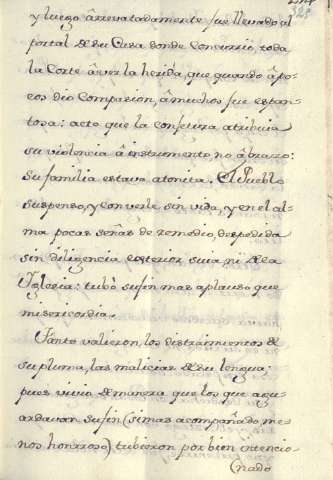 y luego ârrevatadamente fue llevado al
portal de su Casa donde Concurrió toda
la Corte â ver la herida, que quando â po-
cos dio Compasion, â muchos fue espan-
tosa: acto que la conjetura atribuia
su violencia â instrumento, no â brazo:
su familia estava atonita. El Pueblo
suspenso, y con verle sin vida, y en el al-
ma pocas señas de remedio, despedida
sin diligencia exterior suia ni de la
Yglesia: tubo su fin mas aplauso que
misericordia.
Tanto valieron los distraimientos de
su pluma, las malicias de su lengua;
pues vivio de manera que los que agu-
ardavan su fin (si mas acompañado, me-
nos honrroso) tubieron por bien intencio-
(nado